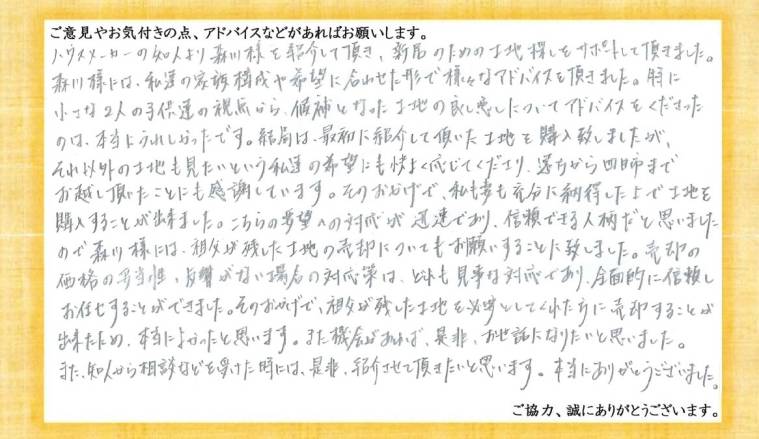 ご意見やお気付きの点、アドバイスなどがあればお願いします。
ハウスメーカーの知人より森川様を紹介して頂き、新居のための土地探しをサポートして頂きました。
森川様には、私達の家族構成や希望に合わせた形で様々なアドバイスを頂きました。特に
小さな2人の子供達の視点から、候補となった土地の良し悪しについてアドバイスをくださった
のは、本当にうれしかったです。結局は、最初に紹介して頂いた土地を購入致しましたが、
それ以外の土地も見たいという私達の希望にも快よく応じてくださり、遠ちから四日市まで
お越し頂いたことにも感謝しています。そのおかげで、私も妻も充分に納得した上で土地を
購入することが出来ました。こちらの要望への対応が迅速であり、信頼できる人柄だと思いました
ので森川様には、祖父が残した土地の売却についてもお願いすることに致しました。売却の
価格の妥当性、反響がない場合の対応策は、どれも見事な対応であり、全面的に信頼し
お任せすることができました。そのおかげで、祖父が残した土地を必要としてくれた方に売却することが
出来たため、本当によかったと思います。また機会があれば、是非、お世話になりたいと思いました。
また、知人から相談などを受けた時には、是非、紹介させて頂きたいと思います。本当にありがとうございました。
ご協力、誠にありがとうございます。